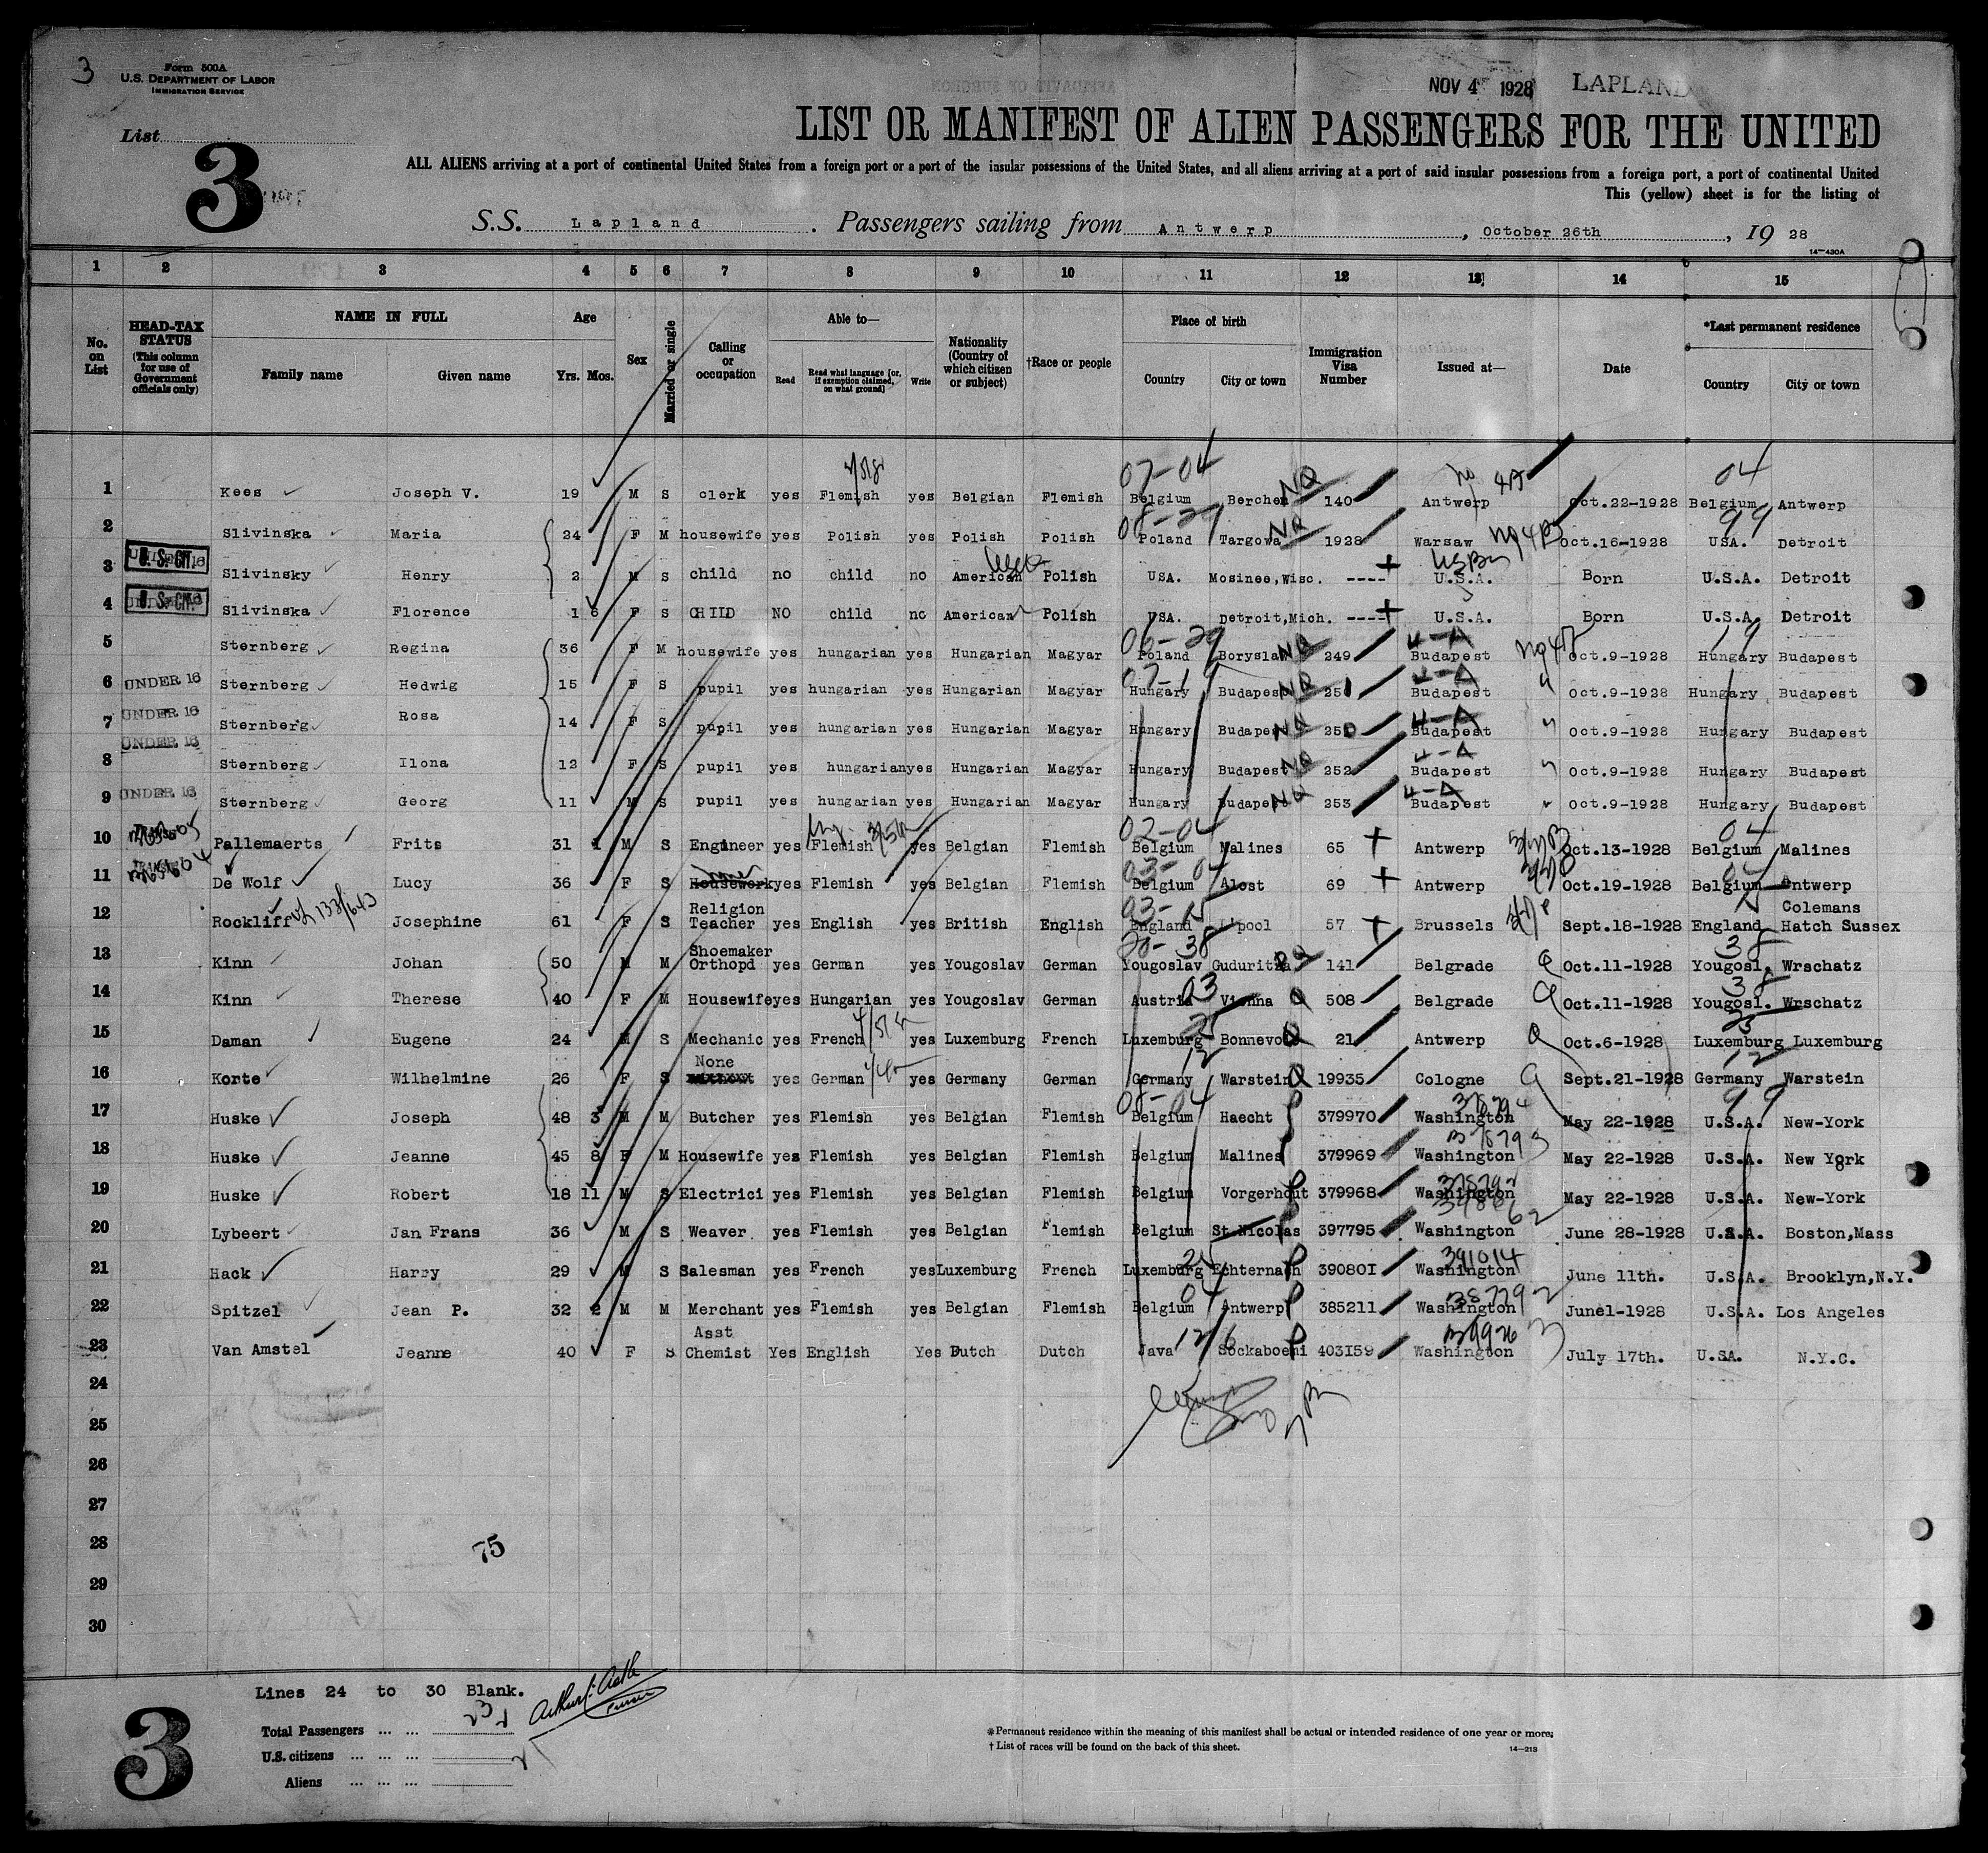 3
Form 500A
U.S. DEPARTMENT OF LABOR
IMMIGRATION SERVICE
NOV 4 1928 LAPLAND
List
3
LIST OR MANIFEST OF ALIEN PASSENGERS FOR THE UNITED
ALL ALIENS arriving at a port of continental United States from a foreign port or a port of the insular possessions of the United States, and all aliens arriving at a port of said insular possessions from a foreign port, a port of continental United
This (yellow) sheet is for the listing of
S.S. Lapland. Passengers sailing from Antwerp, October 26th, 19 28
14—430A
1 2 3 4 5 6 7 8 9 10 11 12 13 14 15
No. on List
HEAD-TAX STATUS (This column for use of Government officials only)
NAME IN FULL
Family name Given name
Age
Yrs. Mos.
Sex
Married or single
Calling or occupation
Able to—
Read Read what language [or, if exemption claimed, on what ground] Write
Nationality (Country of which citizen or subject)
†Race or people
Place of birth
Country City or town
Immigration Visa Number
Issued at—
Date
*Last permanent residence
Country City or town
07-04 04
1 Kees Joseph V. 19 M S clerk yes Flemish yes Belgian Flemish Belgium Berchem NQ 140 Antwerp Oct.22-1928 Belgium Antwerp
08-29 99
2 Slivinska Maria 24 F M housewife yes Polish yes Polish Polish Poland Targowa NQ 1928 Warsaw Oct.16-1928 USA. Detroit
3 U.S. CIT. Slivinsky Henry 2 M S child no child no American Polish USA. Mosinee,Wisc. ---- U.S.A. Born U.S.A. Detroit
4 U.S. CIT. Slivinska Florence 1 8 F S CHILD NO child no American Polish USA. Detroit,Mich. ---- U.S.A. Born U.S.A. Detroit
06-29 4-A 19
5 Sternberg Regina 36 F M housewife yes hungarian yes Hungarian Magyar Poland Boryslaw NQ 249 Budapest Oct.9-1928 Hungary Budapest
07-19 4-A
6 UNDER 16 Sternberg Hedwig 15 F S pupil yes hungarian yes Hungarian Magyar Hungary Budapest NQ 251 Budapest " Oct.9-1928 Hungary Budapest
4-A
7 UNDER 16 Sternberg Rosa 14 F S pupil yes hungarian yes Hungarian Magyar Hungary Budapest NQ 250 Budapest " Oct.9-1928 Hungary Budapest
4-A
8 UNDER 16 Sternberg Ilona 12 F S pupil yes hungarian yes Hungarian Magyar Hungary Budapest NQ 252 Budapest " Oct.9-1928 Hungary Budapest
4-A
9 UNDER 16 Sternberg Georg 11 M S pupil yes hungarian yes Hungarian Magyar Hungary Budapest NQ 253 Budapest " Oct.9-1928 Hungary Budapest
02-04 04
10 Pallemaerts Frits 31 1 M S Engineer yes Flemish yes Belgian Flemish Belgium Malines 65 Antwerp Oct.13-1928 Belgium Malines
03-04 04
11 De Wolf Lucy 36 F S Housework yes Flemish yes Belgian Flemish Belgium Alost 69 Antwerp Oct.19-1928 Belgium Antwerp
03-15 15
12 Rockliff Josephine 61 F S Religion Teacher yes English yes British English England L'pool 57 Brussels Sept.18-1928 England Colemans Hatch Sussex
20-38 38
13 Kinn Johan 50 M M Shoemaker Orthopd yes German yes Yougoslav German Yougoslav Guduritza 141 Belgrade Oct.11-1928 Yougosl. Wrschatz
03 38
14 Kinn Therese 40 F M Housewife yes Hungarian yes Yougoslav German Austria Vienna 508 Belgrade Oct.11-1928 Yougosl. Wrschatz
25
15 Daman Eugene 24 M S Mechanic yes French yes Luxemburg French Luxemburg 21 Antwerp Oct.6-1928 Luxemburg Luxemburg
12 12
16 Korte Wilhelmine 26 F S None yes German yes Germany German Germany Warstein 19935 Cologne Sept.21-1928 Germany Warstein
08-04 99
17 Huske Joseph 48 3 M M Butcher yes Flemish yes Belgian Flemish Belgium Haecht 379970 Washington May 22-1928 U.S.A. New-York
18 Huske Jeanne 45 8 F M Housewife yes Flemish yes Belgian Flemish Belgium Malines 379969 Washington May 22-1928 U.S.A. New York
19 Huske Robert 18 11 M S Electrici yes Flemish yes Belgian Flemish Belgium Vorgerhout 379968 Washington May 22-1928 U.S.A. New-York
20 Lybeert Jan Frans 36 M S Weaver yes Flemish yes Belgian Flemish Belgium St.Nicolas 397795 Washington June 28-1928 U.S.A. Boston,Mass
25 391014
21 Hack Harry 29 M S Salesman yes French yes Luxemburg French Luxemburg Echternach 390801 Washington June 11th. U.S.A. Brooklyn,N.Y.
04
22 Spitzel Jean P. 32 2 M M Merchant yes Flemish yes Belgian Flemish Belgium Antwerp 385211 Washington June1-1928 U.S.A. Los Angeles
23 Van Amstel Jeanne 40 F S Asst Chemist Yes English Yes Dutch Dutch Java Sockaboemi 403159 Washington July 17th. U.SA. N.Y.C.
24
25
26
27
28 75
29
30
Lines 24 to 30 Blank.
3
Total Passengers ... ... 23
U.S. citizens ... ... ... 2
Aliens ... ... ... 21
*Permanent residence within the meaning of this manifest shall be actual or intended residence of one year or more.
† List of races will be found on the back of this sheet.
14—213